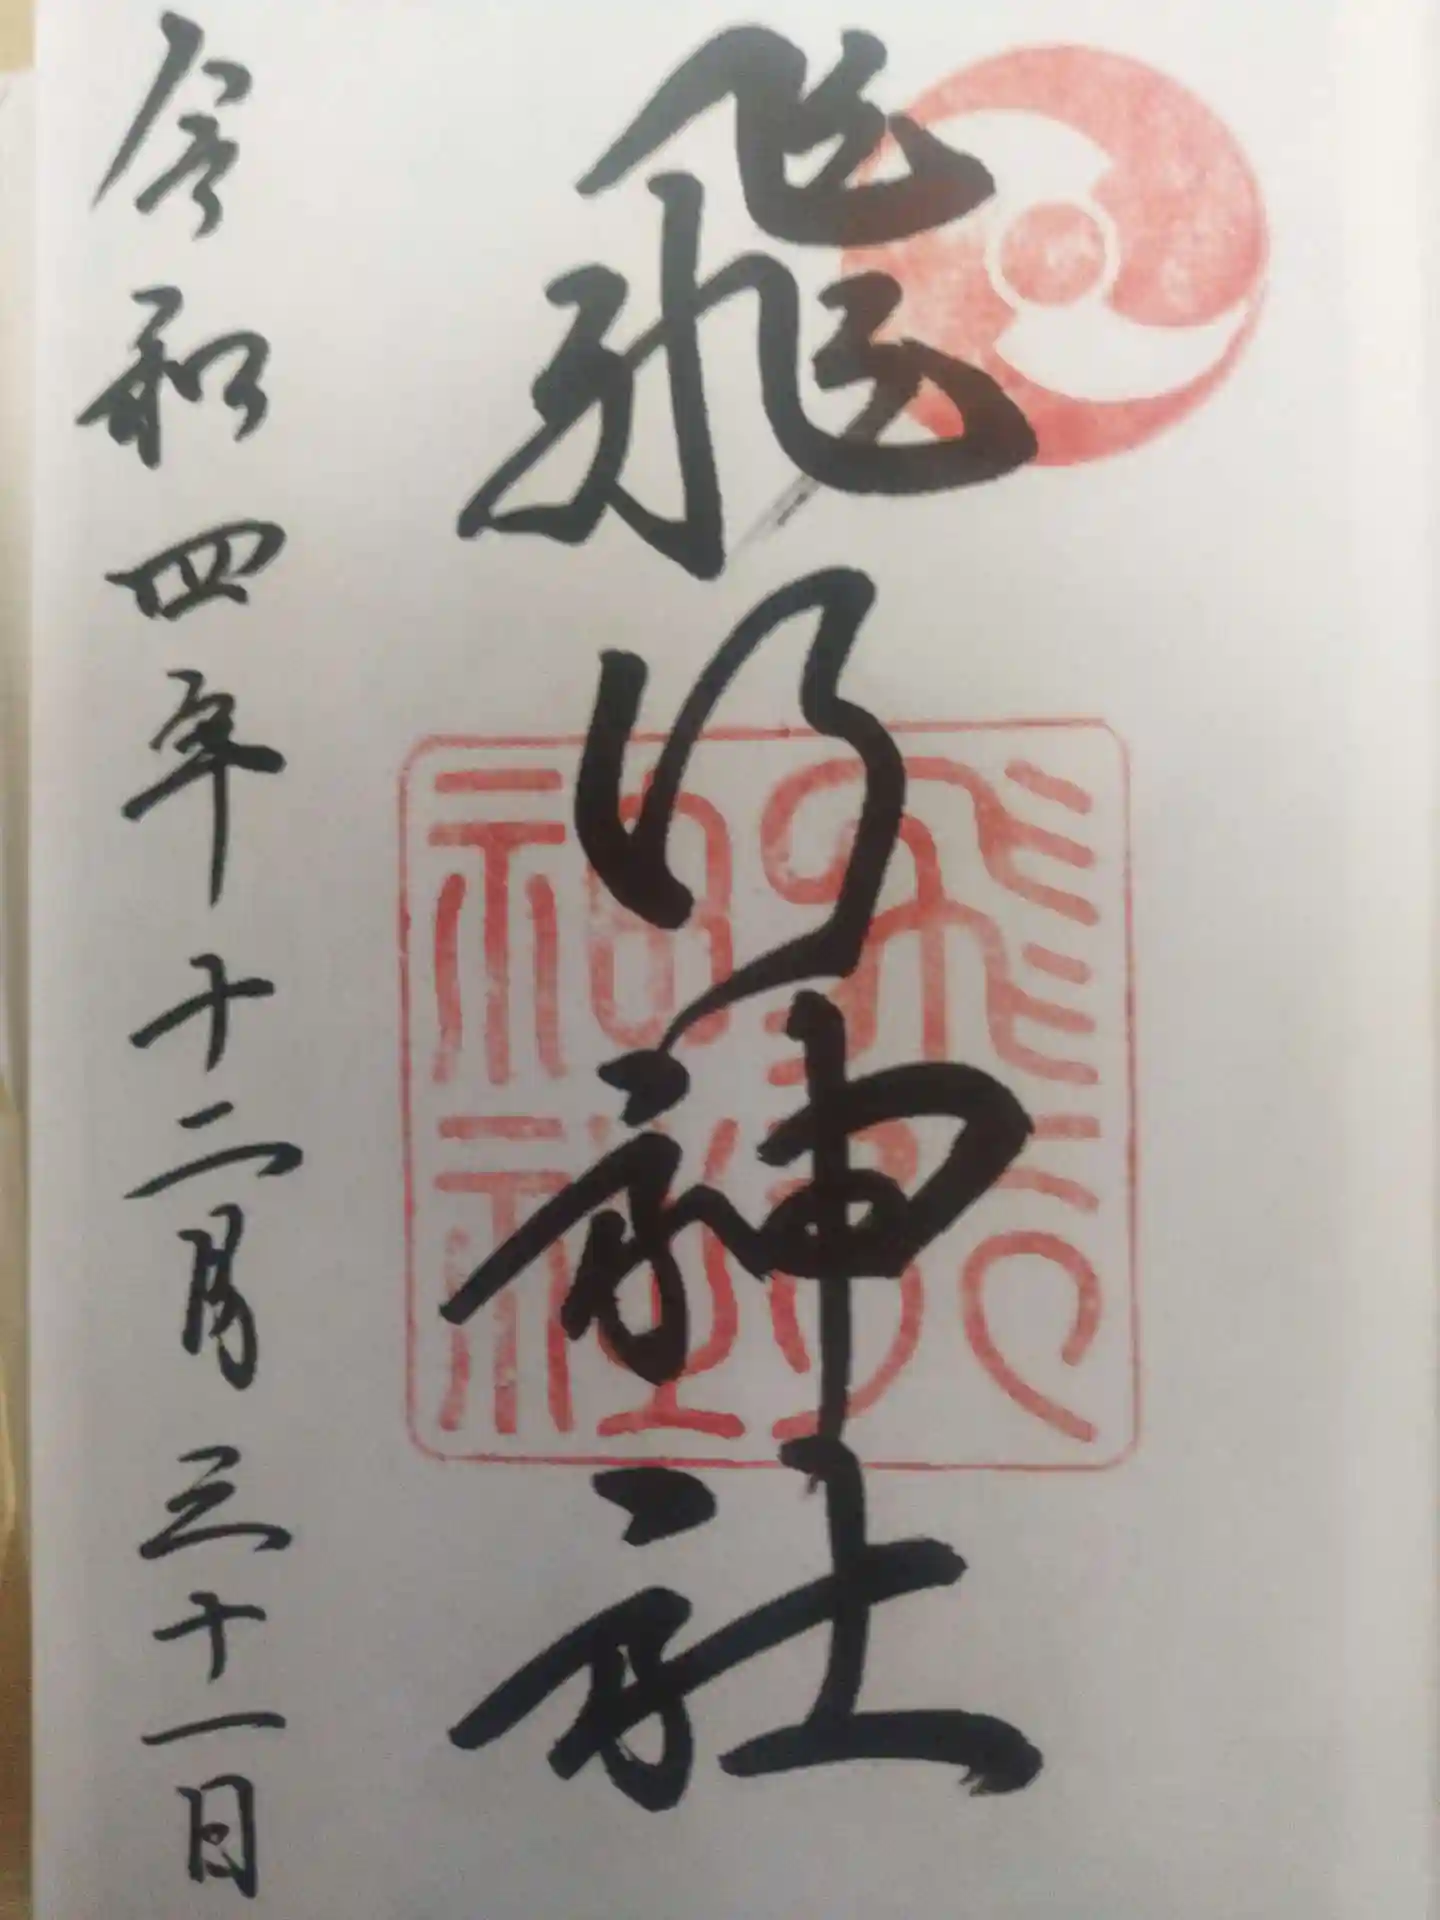 飛行神社
令和四年十二月三十一日
飛行
神社